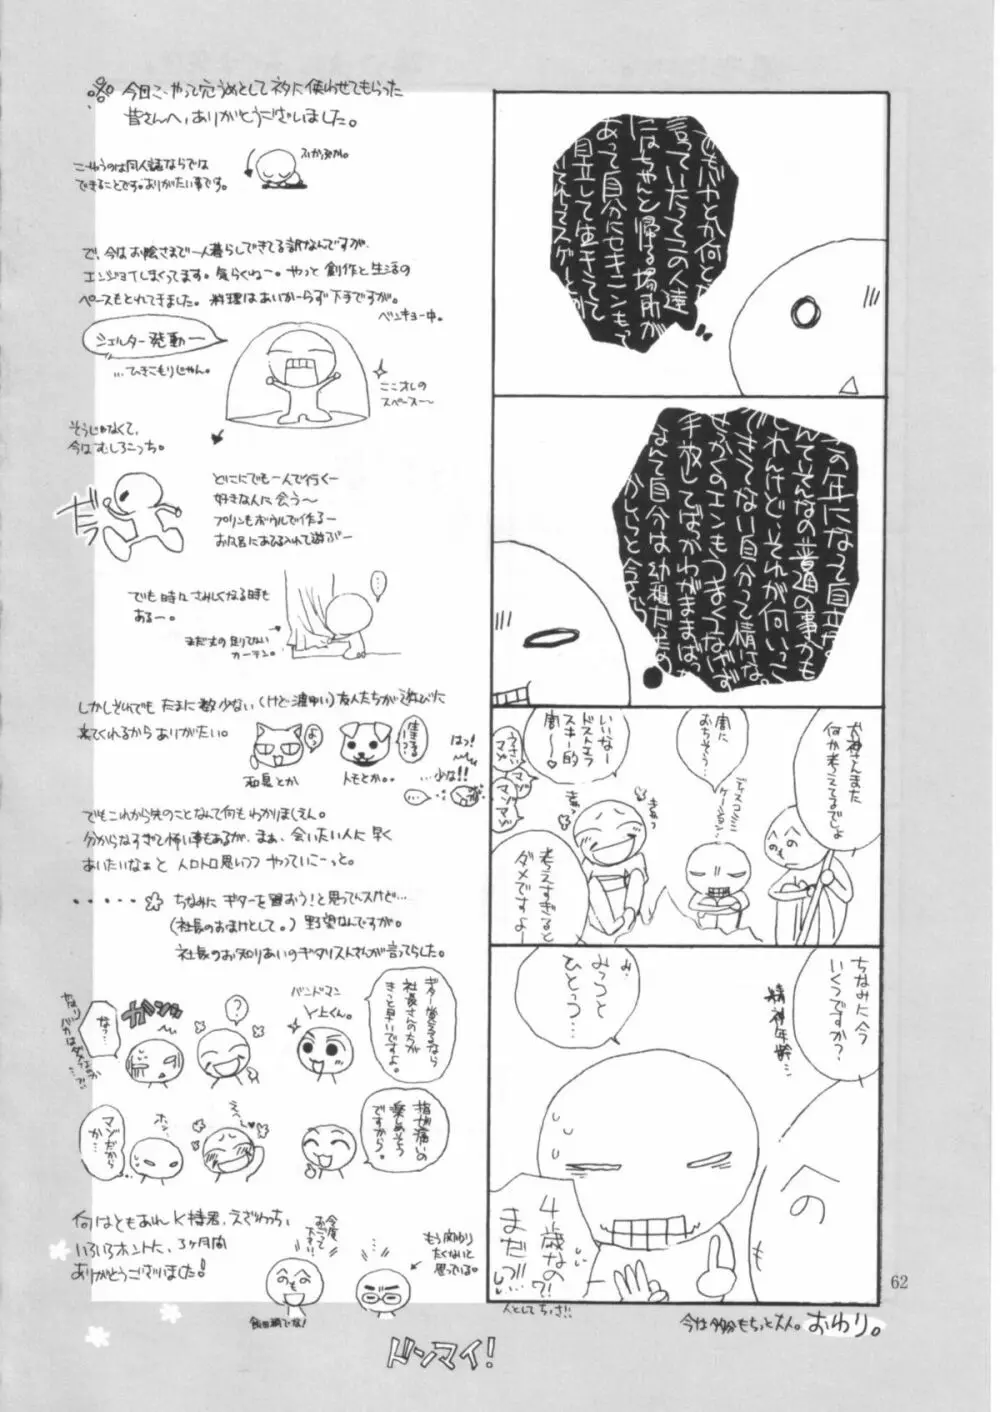 でもバヤとか何とか
言っていたってこの人達
にはちゃんと帰る場所が
あって自分にセキニンもって
自立して生きてて
それってスゲーとか
この年になって自立か。
んてそんなの普通の事かも
しれんけど、それが何いっこ
できてない自分って情けな。
せっかくのエンもうまくつなげず
手放してばっかわがままばっか
なんて自分は幼稚だもの
かしらと今さら
犬神さんまた
何か考えてるでしょ
闇に
おちそう…
ディスコミュニ
ケーション…
いいなー
ドストエフ
スキー的
闇〜♡
うるさい
マゾ
マゾ
マゾマゾ
きゃっ
きゃっ
考えすぎると
ダメですよー
ちなみに今
いくつですか?
精神年齢…
み、
みっつと
ひとつ…
4歳なの?!
まだ
人としてちっさ!!
今は多分もちっと大人。おわり。
62
今回こーやって穴うめとしてネタに使わせてもらった
皆さんへ、ありがとうございました。
こーゆうのは同人誌ならでは
できることです。ありがたい事です。
ふかぶか。
で、今はお陰さまで一人暮らしできてる訳なんですが、
エンジョイしまくってます。気らくねー。やっと創作と生活の
ペースもとれてきました。料理はあいかーらず下手ですが。
ベンキョー中。
シェルター発動ー
…ひきこもりじゃん。
ここオレの
スペース〜
そうじゃなくて、
今はむしろこっち。
だっ
どこにでも一人で行くー
好きな人に会う〜
プリンもボウルで作るー
お風呂にあひる入れて遊ぶー
でも時々さみしくなる時も
あるー。
まだ丈の足りてない
カーテン。
…
しかしそれでもたまに数少ない(けど濃ゆい)友人たちが遊びに
来てくれるからありがたい。
よっ
和見とか
生きてる?
トモとか。。
はっ!
…少な!!
でもこれから先のことなんて何もわかりませえん。
分からなすぎて怖い事もあるが、まぁ、会いたい人に早く
あいたいなぁと 人ロトロ思いつつ やっていこーっと。
ちなみに ギターを買おう!と思ってんスけど…
(社長のおまけとして。)野望なんですが。
社長のお知りあいのギタリストさんが言ってらした。
ガシッ
な?…
?
バンドマン
Y上くん。
ギター覚えるなら
社長さんの方が
きっと早いですよ。
マゾだから
か…
ホッ…
えへ〜
指が痛いの
楽めそう
ですから。
何はともあれ K特君、えざわっち、
いろいろホントに、3ヶ月間
ありがとうございました!
今度
おごって
下さい!!
もう関わり
たくないと
思っている。
飯田橋でな!
ドンマイ!